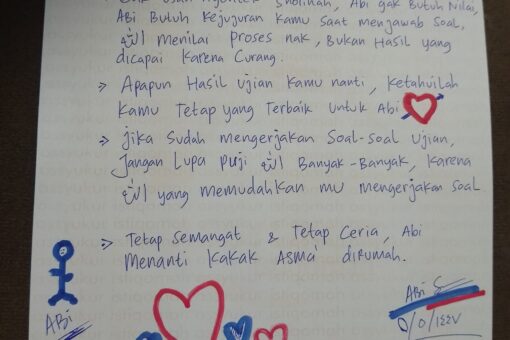 Gak usah nyontek Sholihah, Abi gak Butuh Nilai,
Abi Butuh Kejujuran Kamu Saat menjawab Soal,
الله menilai Proses nak, Bukan Hasil yang
dicapai Karena Curang.
> Apapun Hasil Ujian Kamu nanti, Ketahuilah
Kamu Tetap yang Terbaik Untuk Abi
> Jika Sudah mengerjakan Soal-Soal Ujian,
Jangan Lupa Puji الله Banyak-Banyak, Karena
الله yang memudahkan mu mengerjakan Soal
> Tetap Semangat & Tetap Ceria, Abi
Menanti Kakak Asma' dirumah.
ABi
ABi
٥/٥/١٤٤٧